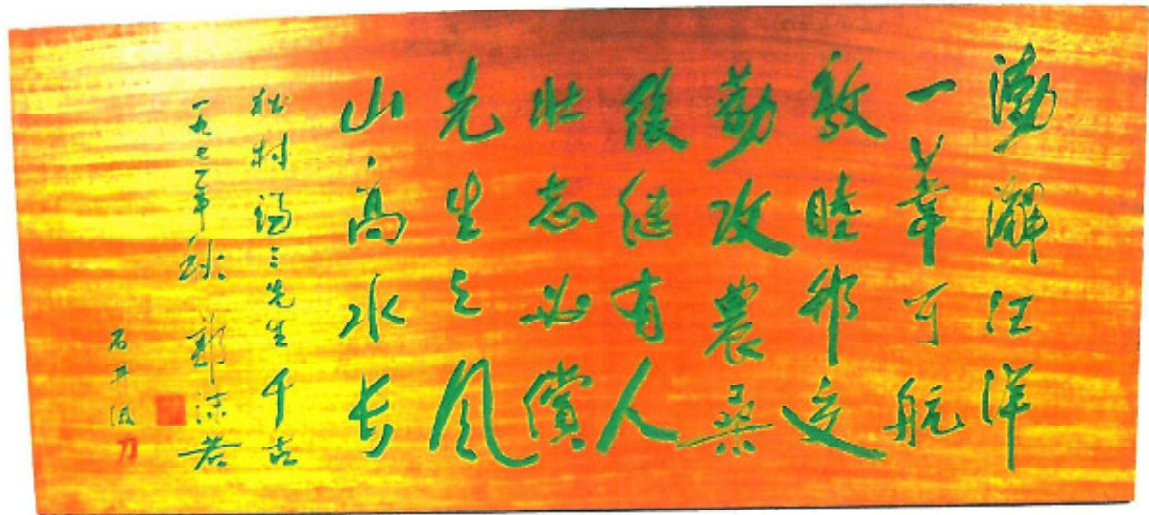 渤澥汪洋
一葦可航
敦睦邦交
勤攻農桑
後继有人
壮志必償
先生之风
山高水长
松村谦三先生千古
一九七一年秋 郭沫若
石井 刀